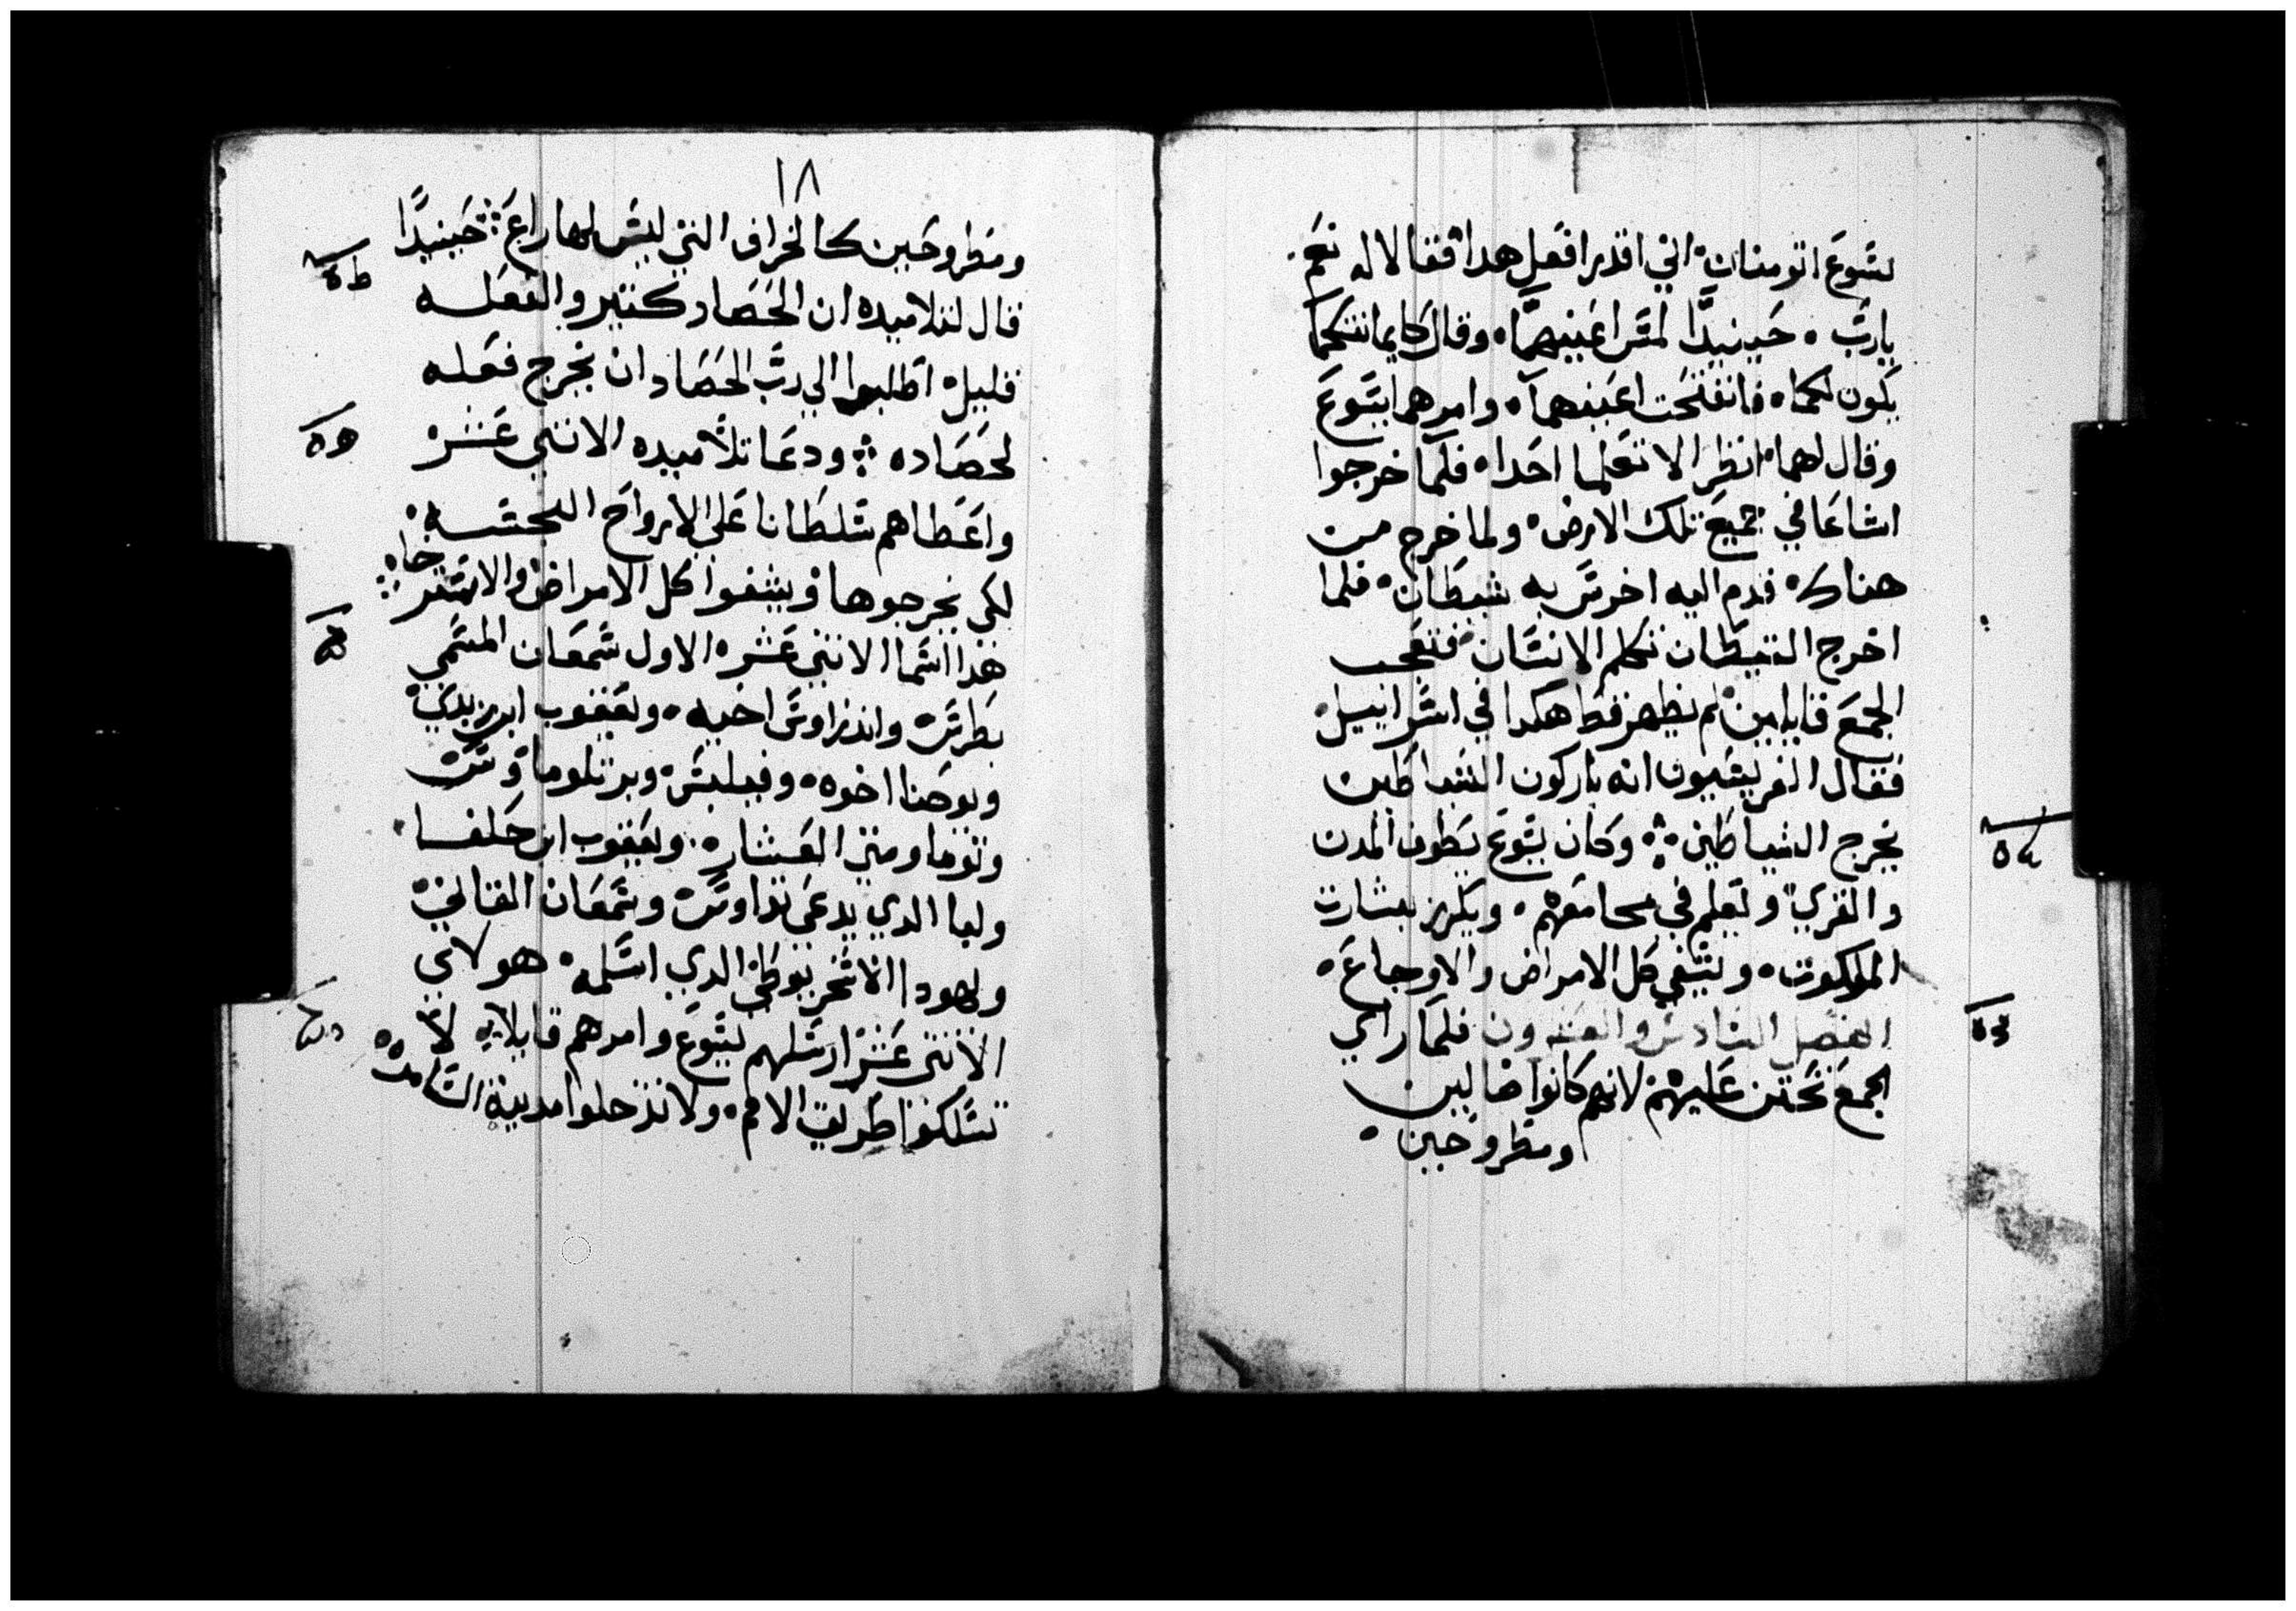 يسوع اتومنان اني اقدر افعل هدا فقالا له نعم
يارب حينيدا لمس اعينهما وقال كايمانكما
يكون لكما فانفتحت اعينهما وامرهما يسوع
وقال لهما انظرا لا تعلما احدا فلما خرجوا
اشاعا في جميع تلك الارض ولما خرج من
هناك قدم اليه اخرس به شيطان فلما
اخرج الشيطان تكلم الانسان فتعجب
الجمع قايلين لم يظهر قط هكدا في اسراييل
فقال الفريسيون انه باركون الشياطين
يخرج الشياطين وكان يسوع يطوف المدن
والقري ويعلم في مجامعهم ويكرز بشارت
الملكوت ويشفي كل الامراض والاوجاع
الفصل السادس والعشرون فلما راي
الجمع تحنن عليهم لانهم كانوا ضالين
ومطروحين
١٨
ومطروحين كالخراف التي ليس لها راع حينيدا
قال لتلاميده ان الحصاد كتير والفعله
قليل اطلبوا الي رب الحصاد ان يخرج فعله
لحصاده ودعا تلاميده الاتني عشر
واعطاهم سلطانا علي الارواح النجسه
لكي يخرجوها ويشفوا كل الامراض والاسترخاء
هذا اسما الاتني عشر الاول سمعان المسمي
بطرس واندراوس اخيه ويعقوب ابن زبدي
ويوحنا اخوه وفيلبس وبرتلوماوس
وتوما ومتي العشار ويعقوب ابن حلفا
وليا الدي يدعي تداوس وسمعان القاني
ويهودا الاسخريوطي الدي اسلمه هولاي
الاتني عشر ارسلهم يسوع وامرهم قايلا لا
تسلكوا طريق الامم ولا تدخلوا مدينة السامره